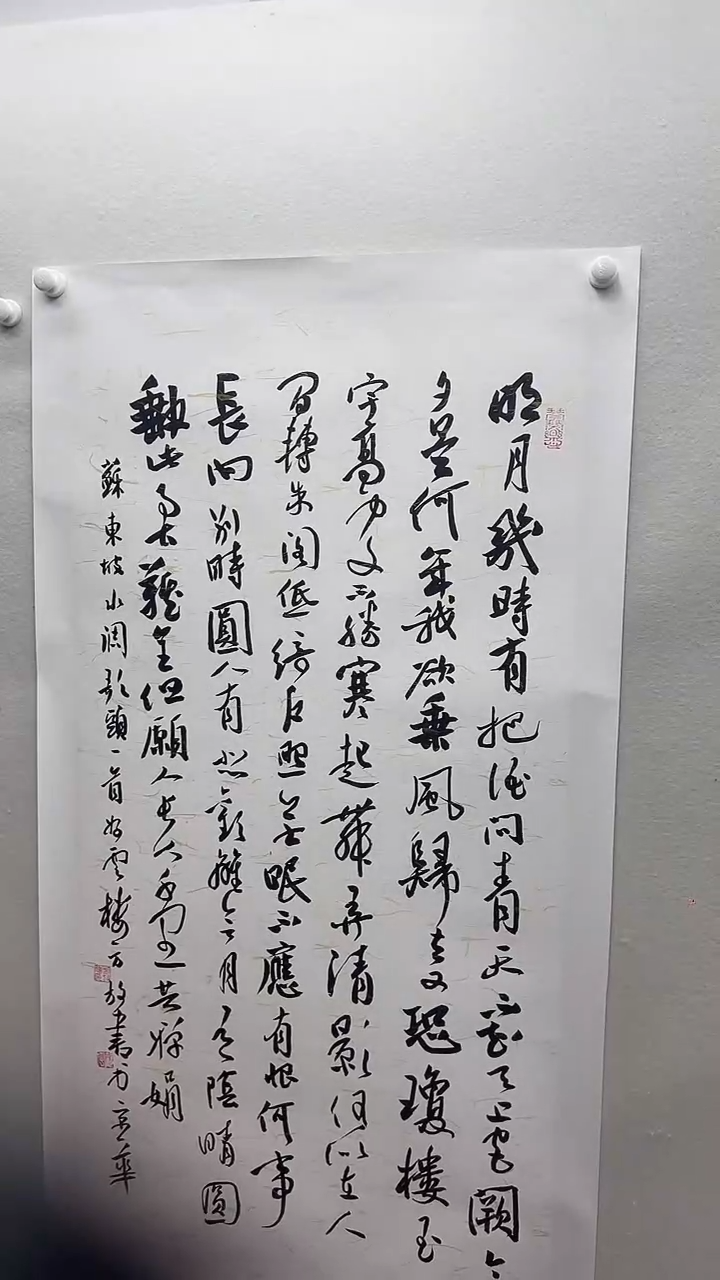 明月幾時有把酒問青天不知天上宮闕今
夕是何年我欲乘風歸去又恐瓊樓玉
宇高處不勝寒起舞弄清影何似在人
間轉朱閣低綺户照無眠不應有恨何事
長向別時圓人有悲歡離合月有陰晴圓
缺此事古難全但願人長久千里共嬋娟
蘇東坡水調歌頭一首 雲樓 書於京華